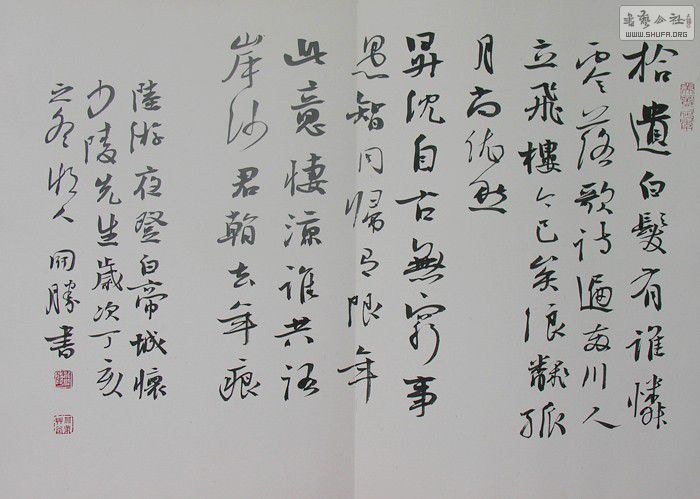 拾遺白髮有誰憐
零落歌詩遍兩川人
立飛樓今已矣浪飜孤
月尚依然
昇沈自古無窮事
愚智同歸有限年
此意悽涼誰共語
岸沙君看去年痕
陸游夜登白帝城懷
少陵先生歲次丁亥
之冬人勝書
書藝公社
WWW.SHUFA.ORG